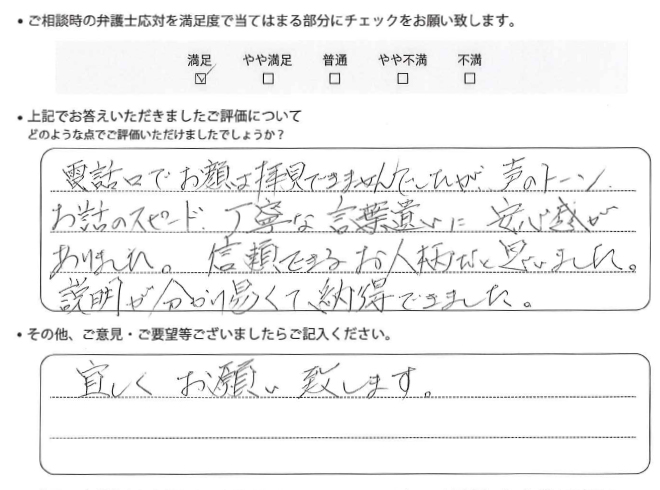 • ご相談時の弁護士応対を満足度で当てはまる部分にチェックをお願い致します。
満足 やや満足 普通 やや不満 不満
☑ □ □ □ □
• 上記でお答えいただきましたご評価について
どのような点でご評価いただけましたでしょうか？
電話口でお顔は拝見できませんでしたが、声のトーン、
お話のスピード、丁寧な言葉遣いに安心感が
ありました。信頼できるお人柄だと思いました。
説明が分かり易くて、納得できました。
• その他、ご意見・ご要望等ございましたらご記入ください。
宜しくお願い致します。